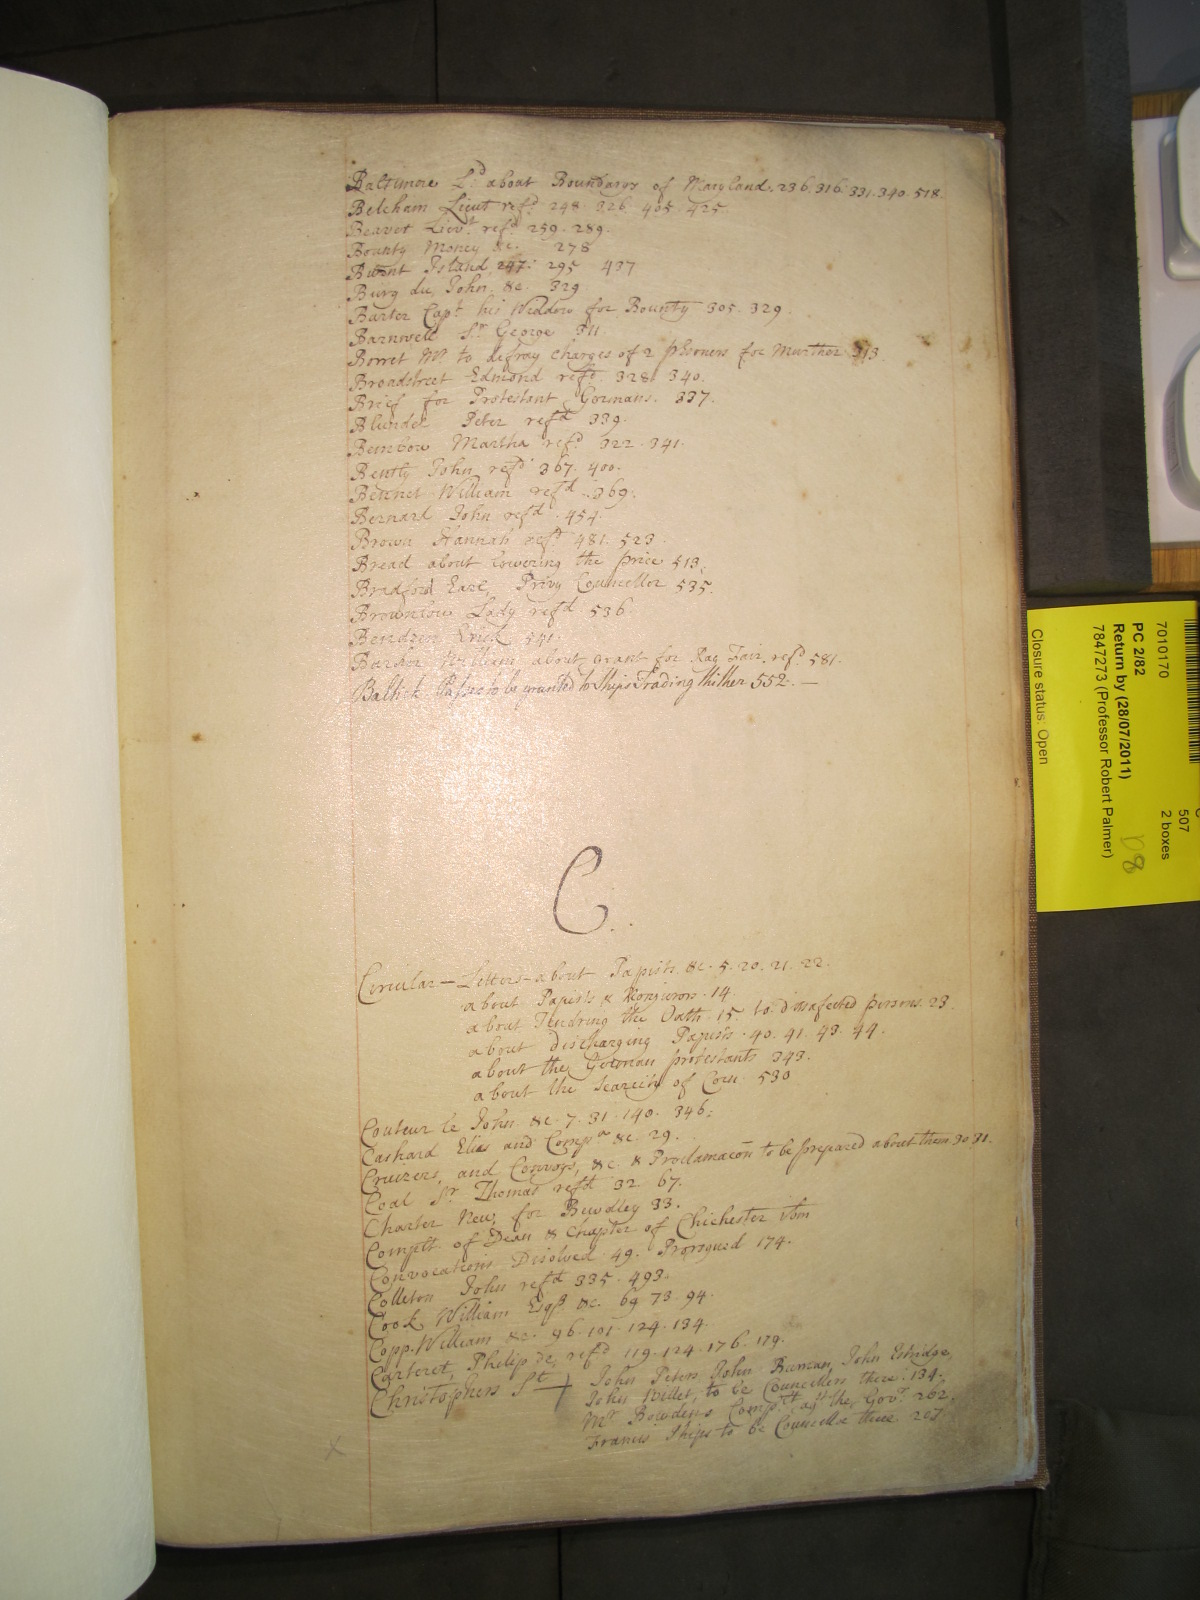 Baltimore Ld about Boundarys of Maryland. 236. 316. 331. 340. 518.
Belcham Lieut refd 248. 326. 405. 425.
Beavet Lieut refd 259. 289.
Bounty Money &c. 278
Burnt Island, 247. 295 437
Burg du, John. &c. 329
Barter Capt his Widdow for Bounty 305. 329.
Barnwell Sr George 311.
Borret Mr to defray charges of 2 prisoners for Murther 313
Broadstreet Edmond refd. 328. 340.
Brief for Protestant Germans. 337.
Blundel Peter refd 339.
Bembow Martha refd 322. 341.
Bently John refd 367. 400.
Bennet William refd. 369.
Bernard John refd. 454.
Brown Hannah refd 481. 523.
Bread about lowering the price 513.
Bradford Earl, Privy Councellor 535.
Brownlow Lady refd 536.
Bendzon Erick 541.
Barker William about grant for Rag Fair. refd 581.
Baltick Passes to be granted to Ships Trading thither 552. —
C.
Circular — Letters — about Papists &c. 5. 20. 21. 22.
about Papists & Nonjurors. 14.
about Tendring the Oath. 15 to disafected persons. 23.
about discharging Papists. 40. 41. 43. 44.
about the German protestants 343.
about the scarcity of Corn. 530
Couteur le John. &c. 7. 31. 140. 346.
Cashard Elias and Compa &c. 29.
Cruizers, and Convoys, &c. & Proclamacon to be prepared about them 30 31.
Coal Sr Thomas refd 32 67.
Charter New, for Bewdley 33.
Complt of Dean & Chapter of Chichester
Convocations Disolved 49. Prorogued 174.
Colleton John refd 335. 493.
Cook William Esqr. &c. 69 73. 94.
Copp. William &c. 96. 101. 124. 134.
Carteret, Philip de, refd 119. 124. 176. 179.
Christophers St — John Peters, John Burman, John Estridge,
John Willet, to be Councellers there. 134.
Mr Bowdens Complt agt the Govr. 262.
Francis Phips to be Councellor there 207
7010170
PC 2/82
Return by (28/07/2011)
7847273 (Professor Robert Palmer)
Closure status: Open
507
2 boxes